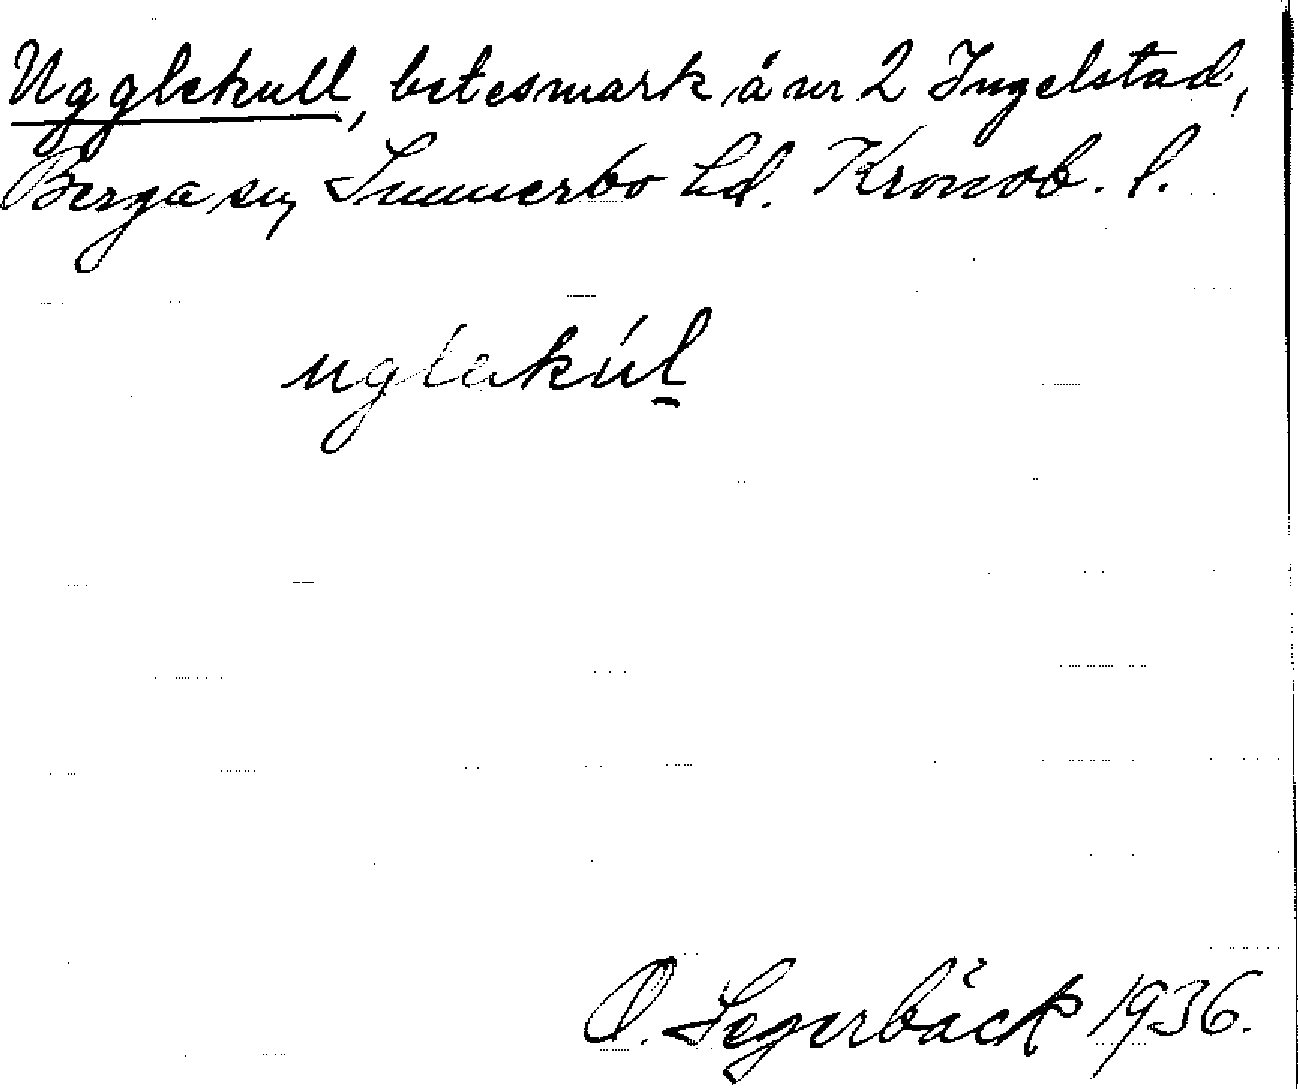 Ugglekull, betesmark å nr 2 Ingelstad,
Berga sn, Sunnerbo hd. Kronob. l.
uglekúl
O. Segerbäck 1936.